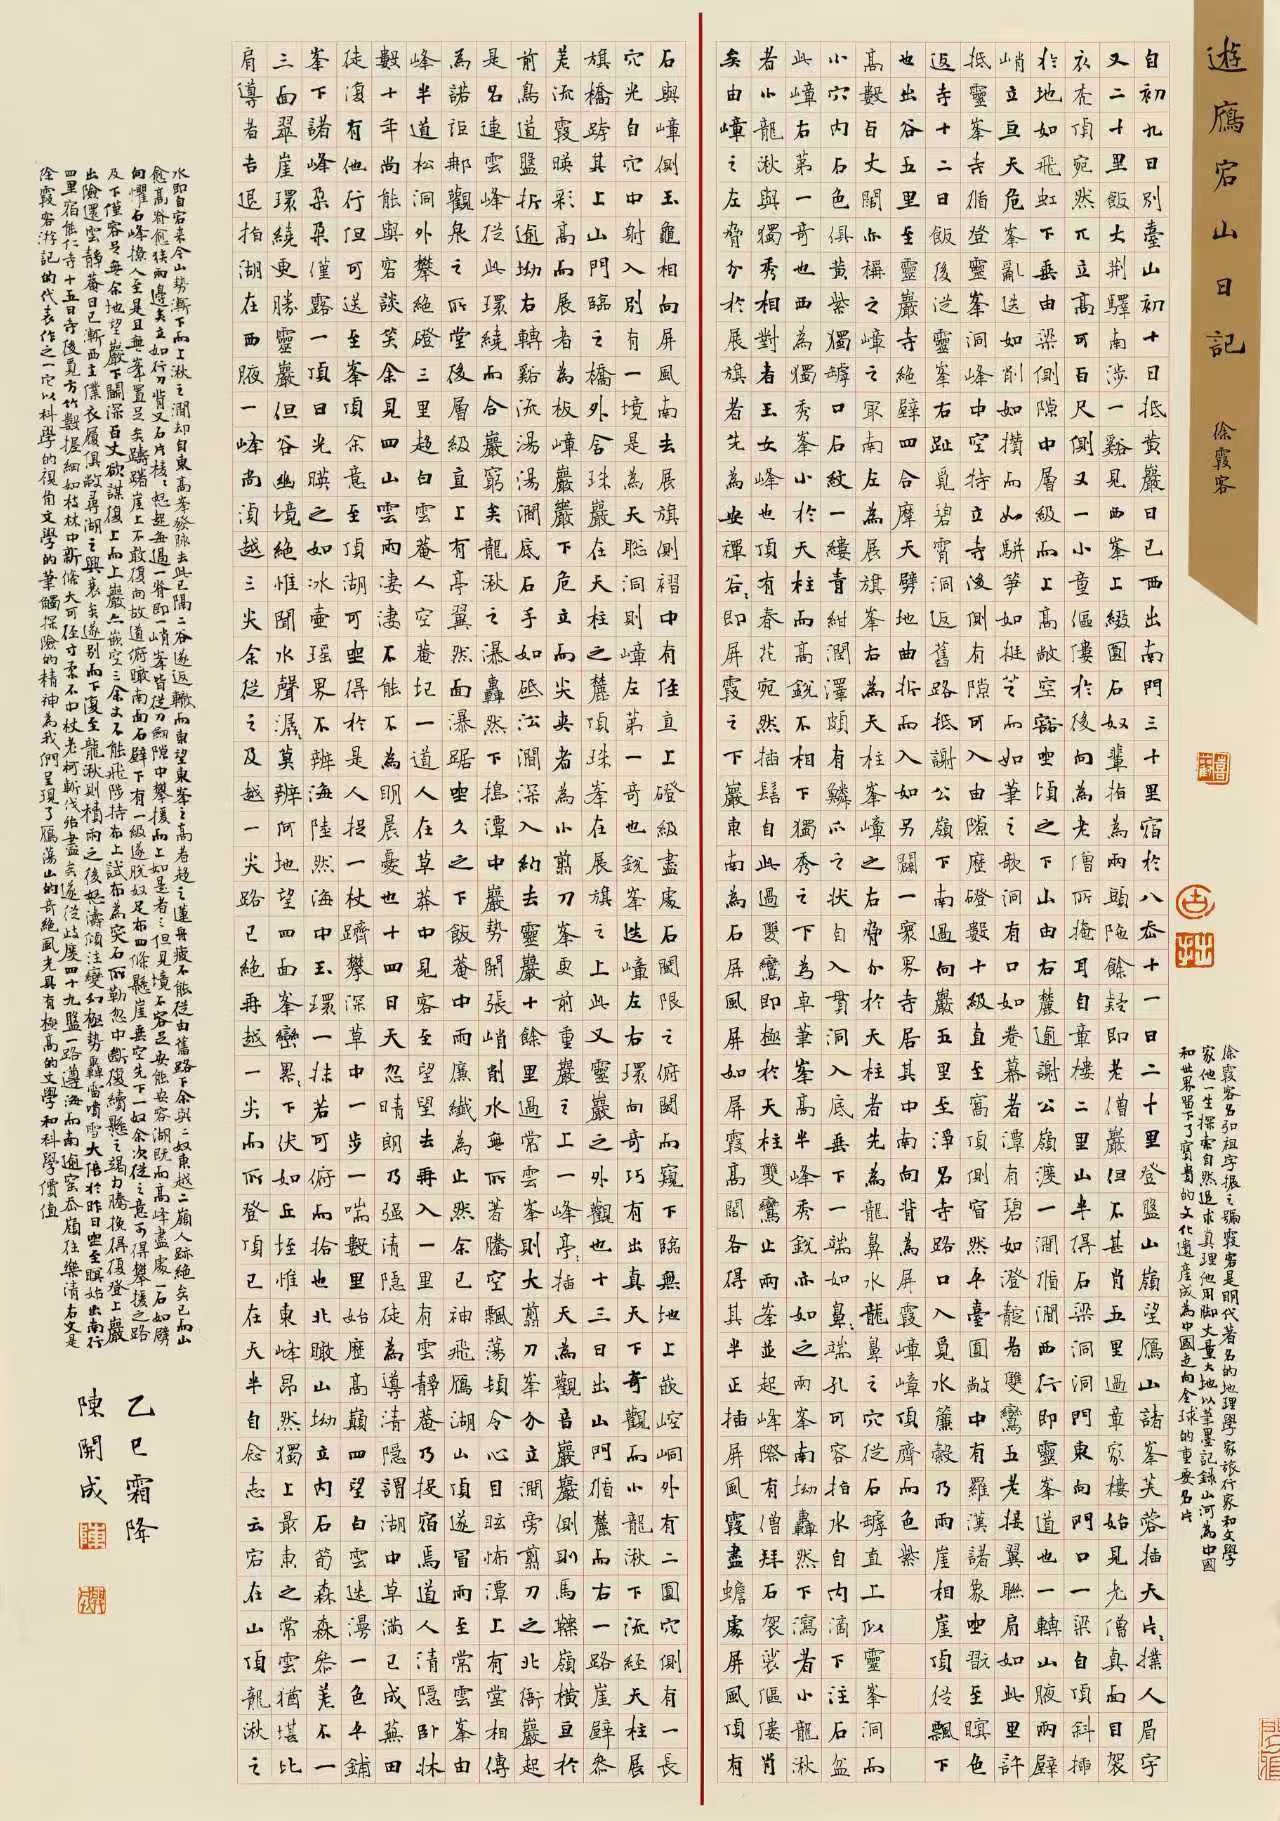 遊鴈宕山日記 徐霞客
徐霞客名弘祖字振之號霞客是明代著名的地理學家旅行家和文學
家他一生探索自然追求真理他用脚丈量大地以筆墨記録山河為中國
和世界留下了寶貴的文化遺産成為中國走向全球的重要名片
自初九日別臺山初十日抵黄巖日已西出南門三十里宿於八岙十一日二十里登盤山嶺望鴈山諸峯芙蓉插天片片撲人眉宇
又二十里飯大荆驛南涉一谿見西峯上綴圓石奴輩指為兩頭陁餘疑即老僧巖但不甚肖五里過章家樓始見老僧真面目袈
衣禿頂宛然兀立高可百尺側又一小童傴僂於後向為老僧所掩耳自章樓二里山半得石梁洞洞門東向門口一梁自頂斜插
於地如飛虹下垂由梁側隙中層級而上高敞空豁坐頃之下山由右麓逾謝公嶺渡一澗循澗西行即靈峯道也一轉山腋兩壁
峭立亘天危峯亂迭如削如攢而如駢笋如挺芝而如筆之歌洞有口如卷幕者潭有碧如澄靛者雙鸞五老接翼聯肩如此里許
抵靈峯寺循登靈峯洞峰中空特立寺後側有隙可入由隙歷磴數十級直至窩頂側窅然平臺圓敞中有羅漢諸象坐翫至暝色
返寺十二日飯後從靈峯右趾覓碧霄洞返舊路抵謝公嶺下南過向巖五里至淨名寺路口入覓水簾穀乃兩崖相崖頂從飄下
也出谷五里至靈巖寺絕壁四合摩天劈地曲折而入如另闢一寰界寺居其中南向背為屏霞嶂嶂頂齊而色紫
高數百丈闊亦稱之嶂之最南左為展旗峯右為天柱峯嶂之右脅介於天柱者先為龍鼻水龍鼻之穴從石罅直上似靈峯洞而
小穴內石色俱黄紫獨罅口石紋一縷青紺潤澤頗有鱗爪之狀自入貫洞入底垂下一端如鼻鼻端孔可容指水自內滴下注石盆
此嶂右第一奇也西為獨秀峯小於天柱而高銳不相下獨秀之下為卓筆峯高半峰秀銳亦如之兩峯南坳轟然下瀉者小龍湫
者小龍湫與獨秀相對者玉女峰也頂有春花宛然插髻自此過雙鸞即極於天柱雙鸞止兩峯並起峰際有僧拜石袈裟傴僂肖
矣由嶂之左脅分於展旗者先為安禪谷谷即屏霞之下巖東南為石屏風屏如屏霞高闊各得其半正插屏風霞盡蟾處屏風頂有
石與嶂側玉龜相向屏風南去展旗側褶中有徑直上磴級盡處石閾限之俯閾而窺下臨無地上嵌崆峒外有二圓穴側有一長
穴光自穴中射入別有一境是為天聪洞則嶂左第一奇也銳峯迭嶂左右環向奇巧有出真天下奇觀而小龍湫下流經天柱展
旗橋跨其上山門臨之橋外含珠巖在天柱之麓頂珠峯在展旗之上此又靈巖之外觀也十三日出山門循麓而右一路崖壁參
差流霞暎彩高而展者為板嶂巖巖下危立而尖夾者為小剪刀峯更前重巖之上一峰亭亭插天為觀音巖巖側則馬鞍嶺橫亘於
前鳥道盤折逾坳右轉谿流湯湯澗底石手如砥沿澗深入約去靈巖十餘里過常雲峯則大剪刀峯介立澗旁剪刀之北衝巖起
是名連雲峰從此環繞而合巖窮矣龍湫之瀑轟然下搗潭中巖勢開張峭削水無所著騰空飄蕩頓令心目眩怖潭上有堂相傳
為諾詎那觀泉之所堂後層級直上有亭翼然面瀑踞坐久之下飯菴中雨廉纖為止然余已神飛鴈湖山頂遂冒雨至常雲峯由
峰半道松洞外攀絕磴三里趨白雲菴人空菴圮一道人在草莽中見客至望望去再入一里有雲靜菴乃投宿焉道人清隱卧牀
數十年尚能與客談笑余見四山雲雨淒淒不能不為明晨憂也十四日天忽晴朗乃强清隱徒為導清隱謂湖中草滿已成蕪田
徒復有他行但可送至峯頂余意至頂湖可坐得於是人捉一杖躋攀深草中一步一喘數里始歷高巔四望白雲迷漫一色平鋪
峯下諸峰朶朶僅露一頂日光暎之如冰壷瑶界不辨海陸然海中玉環一抹若可俯而拾也北瞰山坳立內石筍森森參差不一
三面翠崖環繞更勝靈巖但谷幽境絕惟聞水聲潺潺莫辨何地望四面峯巒累累下伏如丘垤惟東峰昂然獨上最東之常雲猶堪比
肩導者告退指湖在西腋一峰尚湏越三尖余從之及越一尖路已絕再越一尖而所登頂已在天半自念志云宕在山頂龍湫之
水即自宕來今山勢漸下而上湫之澗却自東高峯發脉去此已隔二谷遂返轍而東望東峯之高者趨之蓮舟疲不能從由舊路下余與二奴東越二嶺人跡絕矣已而山
愈高脊愈狹兩邊夾立如行刀背又石片棱棱怒起每過一脊即一峭峯皆從刀劍隙中攀援而上如是者三但見境不容足安能安容湖既而高峰盡處一石如劈
向懼石峰撩人至是且無峯置足矣躊躇崖上不敢復向故道俯瞰南面石壁下有一級遂脫奴足布四條懸崖垂空先下一奴余次從之意可得攀援之路
及下僅容足無余地望巖下鬭深百丈欲謀復上而上巖亦嵌空三余丈不能飛陟持布上試布為突石所勒忽中斷復續懸之竭力騰挽得復登上巖
出險還雲靜菴日已漸西主僕衣履俱敝尋湖之興衰矣遂别而下復至龍湫則積雨之後怒濤傾注變幻極勢轟雷噴雪大倍於昨日坐至暝始出南行
四里宿能仁寺十五日寺後覓方竹數握細如枝林中新條大可徑寸柔不中杖老柯斬伐殆盡矣遂從歧度四十九盤一路遵海而南逾窯岙嶺往樂清右文是
徐霞客游記的代表作之一它以科學的視角文學的筆觸探險的精神為我們呈現了鴈蕩山的奇絕風光具有極高的文學和科學價值
乙巳霜降
陳開成